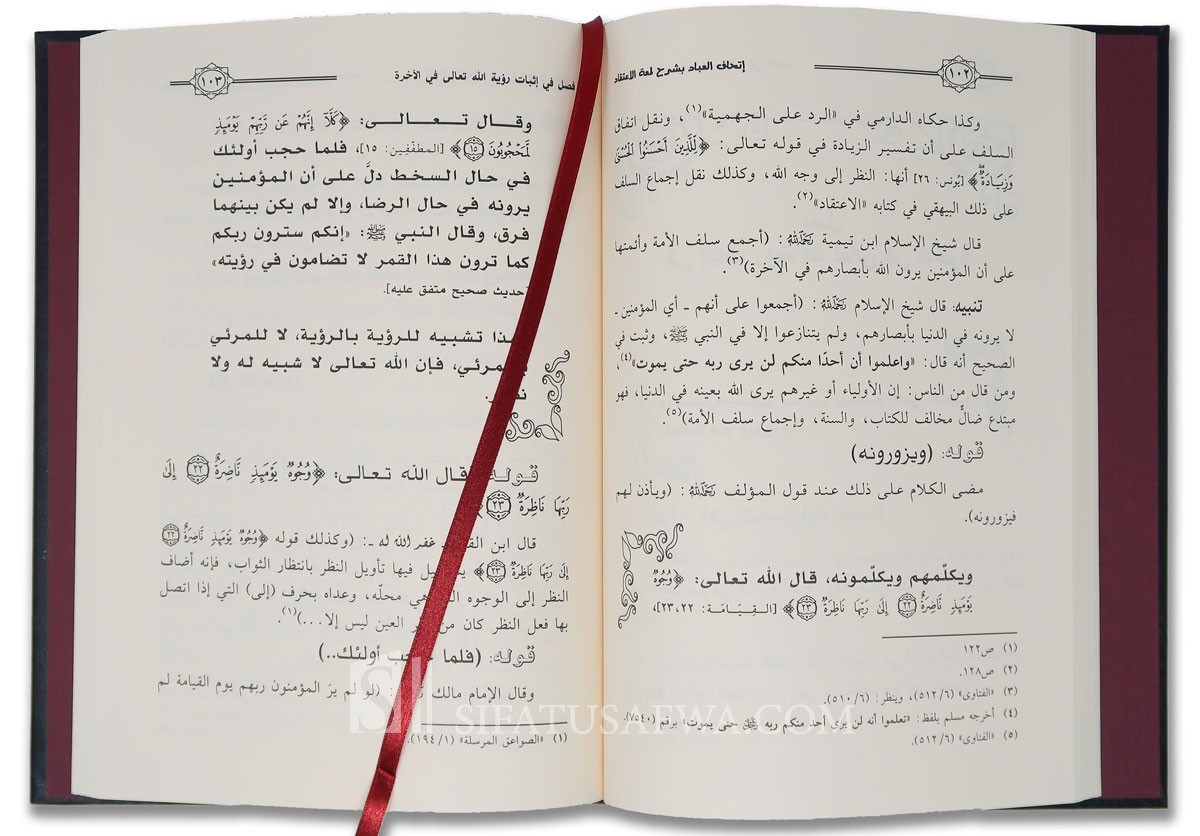 ١٠٢
إتحاف العباد بشرح لمعة الاعتقاد
وكذا حكاه الدارمي في «الرد على الجهمية»(١)، ونقل اتفاق
السلف على أن تفسير الزيادة في قوله تعالى: ﴿لِّلَّذِينَ أَحْسَنُوا۟ ٱلْحُسْنَىٰ
وَزِيَادَةٌ﴾ [يُونس: ٢٦] أنها: النظر إلى وجه الله، وكذلك نقل إجماع السلف
على ذلك البيهقي في كتابه «الاعتقاد»(٢).
قال شيخ الإسلام ابن تيمية رَحِمَهُ اللَّهُ: (أجمع سلف الأمة وأئمتها
على أن المؤمنين يرون الله بأبصارهم في الآخرة)(٣).
تنبيه: قال شيخ الإسلام رَحِمَهُ اللَّهُ: (أجمعوا على أنهم ـ أي المؤمنين ـ
لا يرونه في الدنيا بأبصارهم، ولم يتنازعوا إلا في النبي ﷺ، وثبت في
الصحيح أنه قال: «واعلموا أن أحدًا منكم لن يرى ربه حتى يموت»(٤)،
ومن قال من الناس: إن الأولياء أو غيرهم يرى الله بعينه في الدنيا، فهو
مبتدع ضالٌّ مخالف للكتاب، والسنة، وإجماع سلف الأمة)(٥).
قوله: (ويزورونه)
مضى الكلام على ذلك عند قول المؤلف رَحِمَهُ اللَّهُ: (ويأذن لهم
فيزورونه).
ويكلّمهم ويكلّمونه، قال الله تعالى: ﴿وُجُوهٌ
يَوْمَئِذٍ نَّاضِرَةٌ ٢٢ إِلَىٰ رَبِّهَا نَاظِرَةٌ ٢٣﴾ [القِيَامَة: ٢٢،٢٣]،
(١) ص١٢٢
(٢) ص١٢٨.
(٣) «الفتاوى» (٥١٢/٦)، وينظر: (٥١٠/٦).
(٤) أخرجه مسلم بلفظ: «تعلموا أنه لن يرى أحد منكم ربه ﷻ حتى يموت» برقم (٧٥٤٠).
(٥) «الفتاوى» (٥١٢/٦).
فصل في إثبات رؤية الله تعالى في الآخرة
١٠٣
وقال تعالى: ﴿كَلَّآ إِنَّهُمْ عَن رَّبِّهِمْ يَوْمَئِذٍ
لَّمَحْجُوبُونَ ١٥﴾ [المطفّفِين: ١٥]، فلما حجب أولئك
في حال السخط دلَّ على أن المؤمنين
يرونه في حال الرضا، وإلا لم يكن بينهما
فرق، وقال النبي ﷺ: «إنكم سترون ربكم
كما ترون هذا القمر لا تضامون في رؤيته»
[حديث صحيح متفق عليه].
تشبيه للرؤية بالرؤية، لا للمرئي
بالمرئي، فإن الله تعالى لا شبيه له ولا
قوله: قال الله تعالى: ﴿وُجُوهٌ يَوْمَئِذٍ نَّاضِرَةٌ ٢٢ إِلَىٰ
رَبِّهَا نَاظِرَةٌ ٢٣﴾
قال ابن ـ غفر الله له ـ: (وكذلك قوله ﴿وُجُوهٌ يَوْمَئِذٍ نَّاضِرَةٌ ٢٢
إِلَىٰ رَبِّهَا نَاظِرَةٌ ٢٣﴾ فيها تأويل النظر بانتظار الثواب، فإنه أضاف
النظر إلى الوجوه هي محلّه، وعداه بحرف (إلى) التي إذا اتصل
بها فعل النظر كان من العين ليس إلا...)(١).
قوله: (فلما حجب أولئك..)
وقال الإمام مالك: (لو لم يرَ المؤمنون ربهم يوم القيامة لم
(١) «الصواعق المرسلة» (١٩٤/١).
SIFATUSAFWA.COM